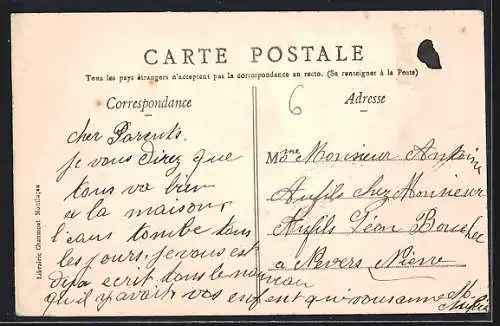 CARTE POSTALE
Tous les pays étrangers n'acceptent pas la correspondance au recto. (Se renseigner à la Poste)
Correspondance
Adresse
6
cher Parents.
je vous direz que
tous va bien
a la maison,
l'eau tombe tous
les jours. je vous est
deja ecrit dans le
qu'il y avait vos enfent qui vous aime
Mme Monsieur Antoine
Aufils chez Monsieur
Aufils Léon Boucher
a Nevers Nièvre
Librairie Chaumont